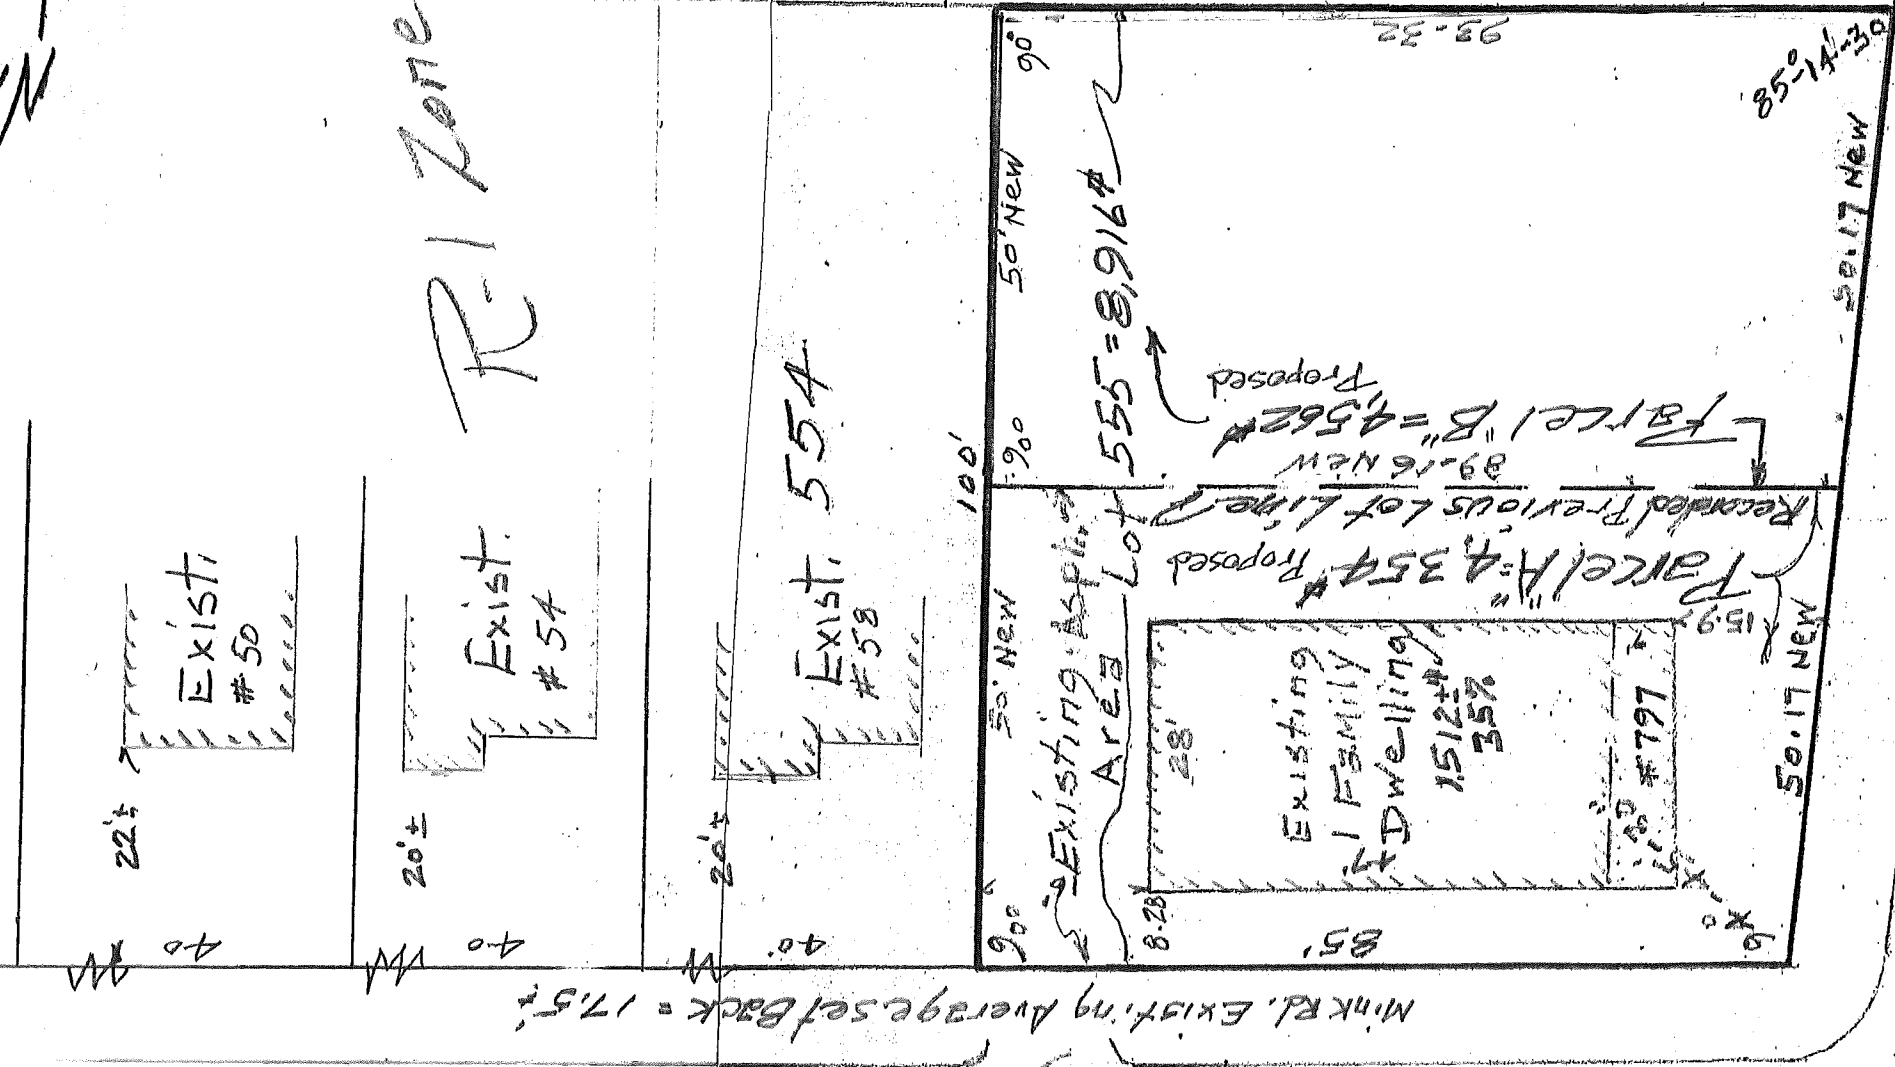 N
R-1 Zone
22'±
Exist.
#50
40
20'±
Exist.
#54
40
20'±
Exist.
#58
554
40'
100'
90°
50' New
90°
93.32
85°-14'-30
50.17 New
Lot 555 = 8,916#
Proposed
Parcel "B" = 4,562#
89.16 New
Recorded Previous Lot Line
Parcel "A" = 4,354#
Proposed
90°
50' New
Existing Asph.
Area
8.28
28'
Existing
1 Family
Dwelling
1512±#
35%
#797
15.9
50.17 New
85'
Mink Rd. Existing Average Set Back = 17.5'±